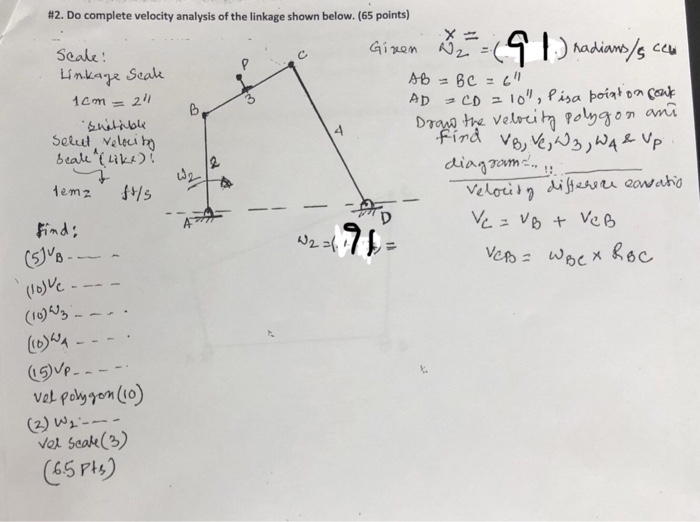 #2. Do complete velocity analysis of the linkage shown below. (65 points)
Scale:
Linkage Scale
1cm = 2"
suitable
Select velocity
Scale (like):
1cm = ft/s
Find:
(5) VB - - -
(10) Vc - - - -
(10) ω3 - - - .
(10) ω4 - - - .
(15) VP - - - - .
vel polygon (10)
(2) ω2 - - -
vel scale (3)
(65 pts)
P
C
3
B
4
2
ω2
A
D
ω2 = (91) =
Given ω2 = (91) radians/s ccw
AB = BC = 6"
AD = CD = 10", P is a point on
Draw the velocity polygon and
find VB, Vc, ω3, ω4 & VP
diagram
Velocity difference
Vc = VB + VCB
VCB = ωBC × RBC